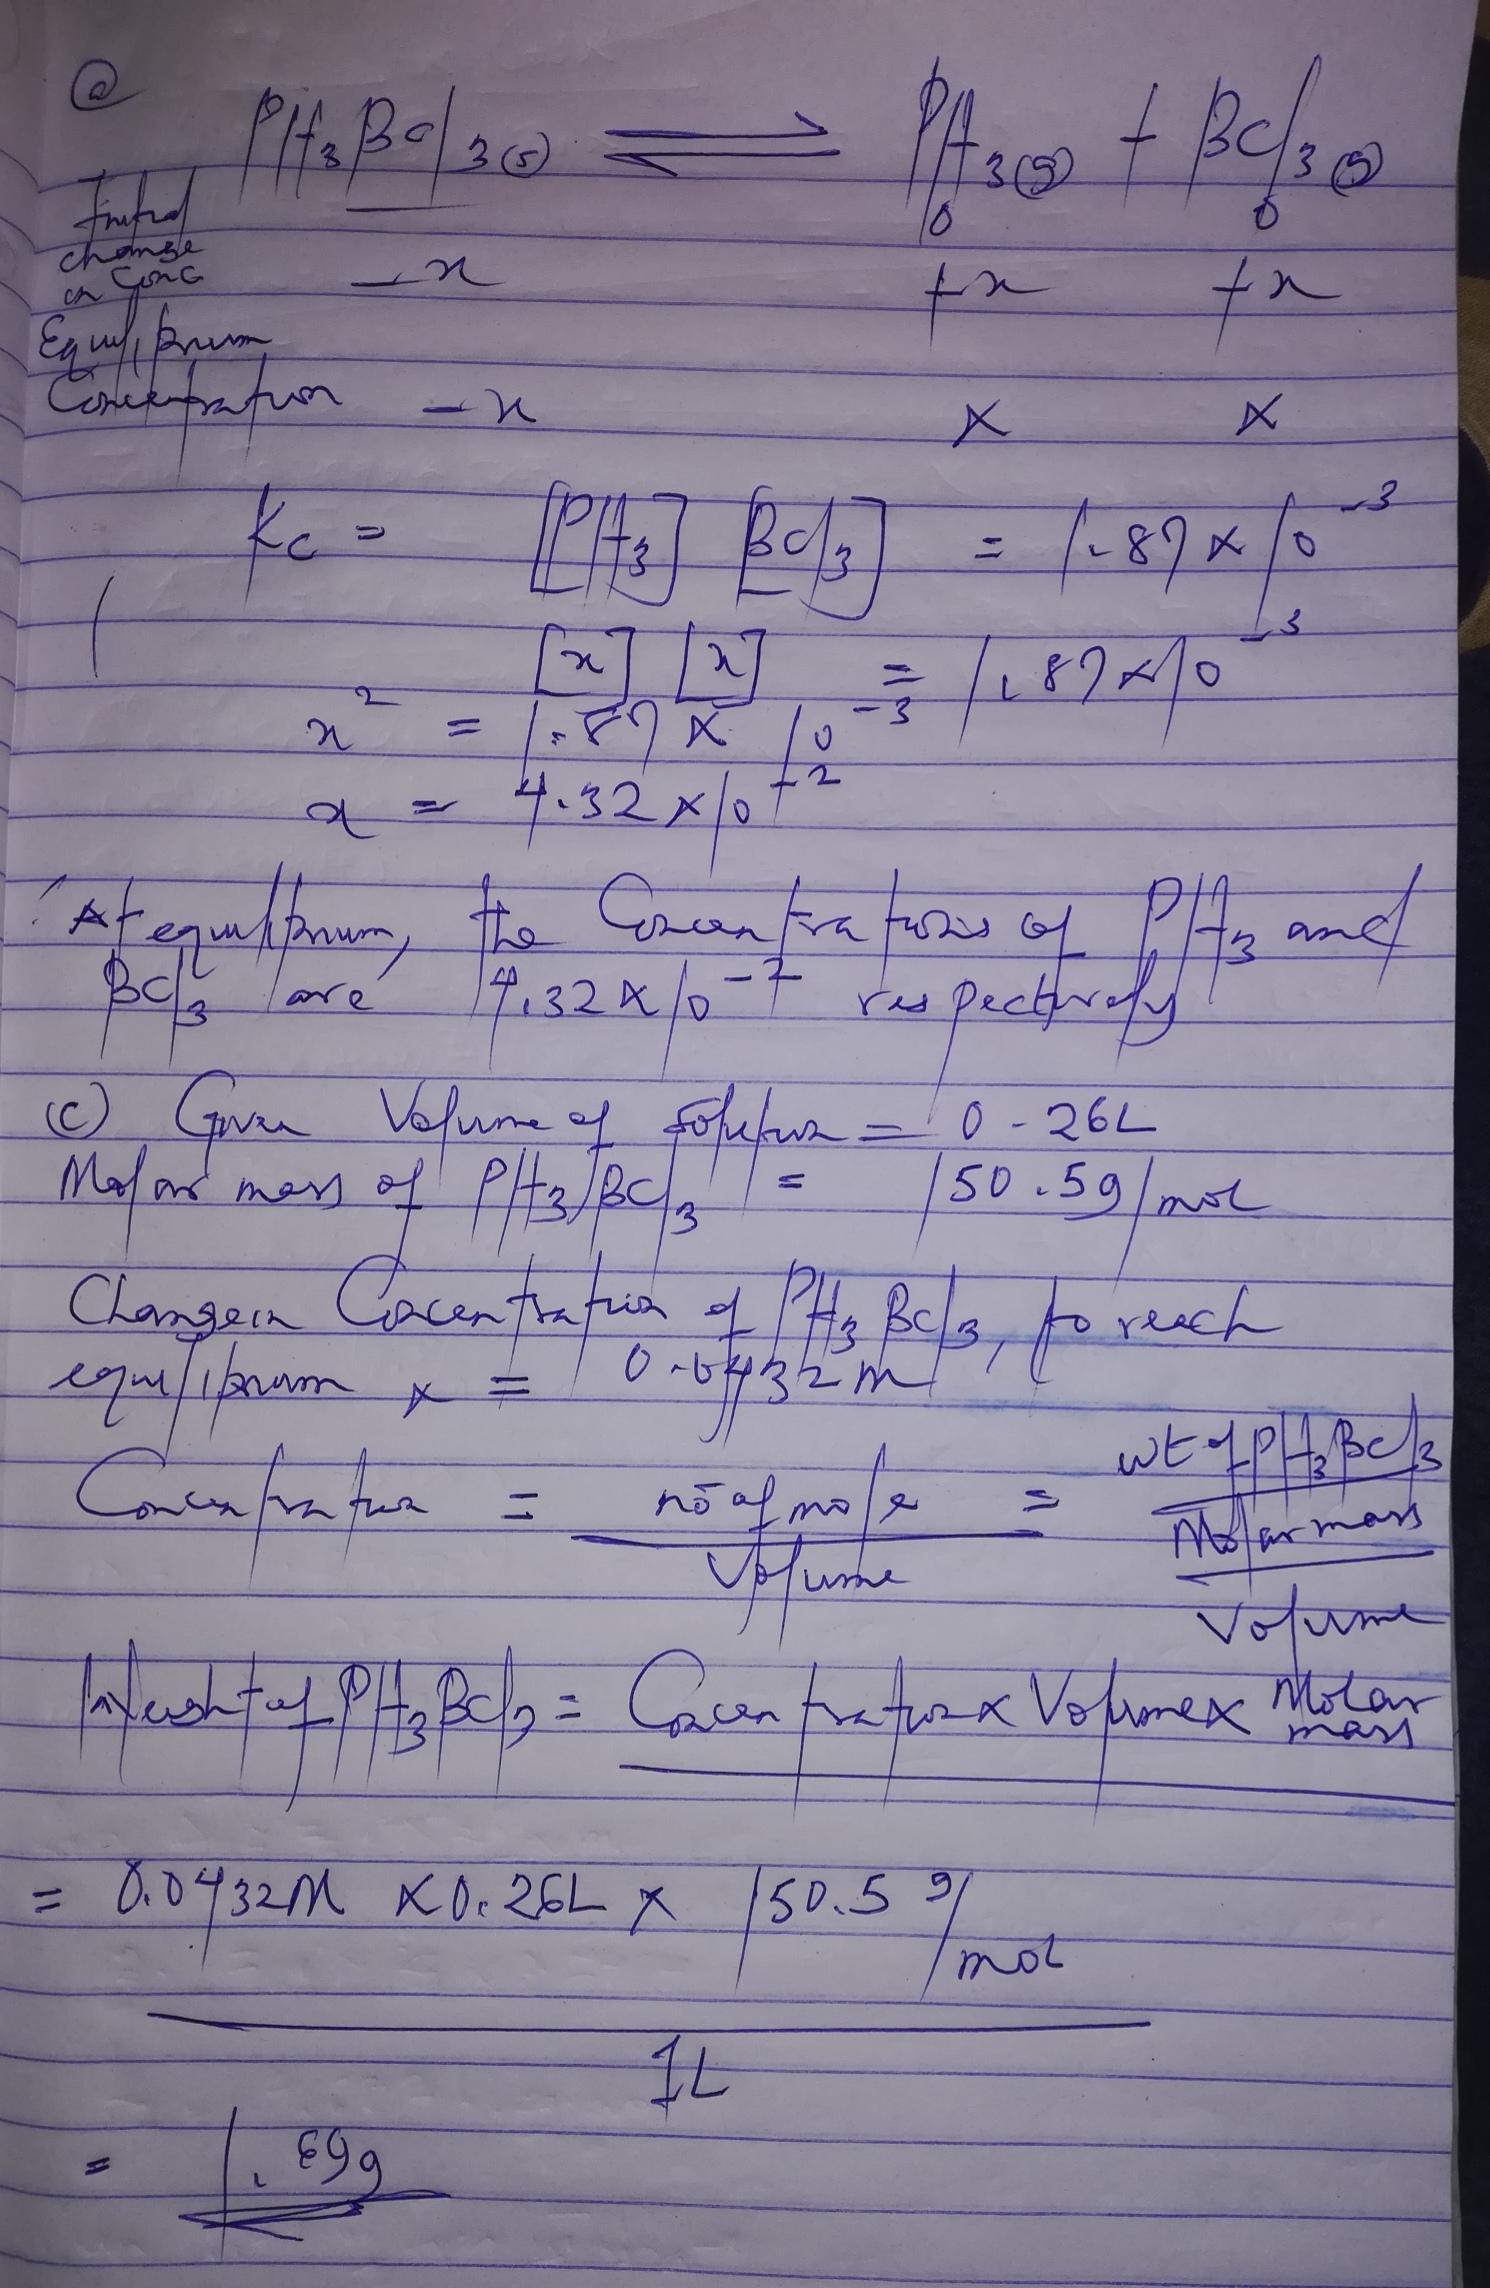 @
PH₃BCl₃(s) ⇌ PH₃(g) + BCl₃(g)
Initial — 0 0
change
in Conc -x +x +x
Equilibrium
Concentration -x x x
Kc = [PH₃] [BCl₃] = 1.87 x 10⁻³
[x] [x] = 1.87 x 10⁻³
x² = 1.87 x 10⁻³
x = 4.32 x 10⁻²
At equilibrium, the Concentrations of PH₃ and
BCl₃ are 4.32 x 10⁻² respectively
(c) Given Volume of Solution = 0.26L
Molar mass of PH₃BCl₃ = 150.5g/mol
Change in Concentration of PH₃BCl₃, to reach
equilibrium x = 0.0432m
Concentration = no of mole / Volume = wt of PH₃BCl₃ / Molar mass / Volume
Weight of PH₃BCl₃ = Concentration x Volume x Molar mass
= 0.0432M x 0.26L x 150.5 g/mol
1L
= 1.69g